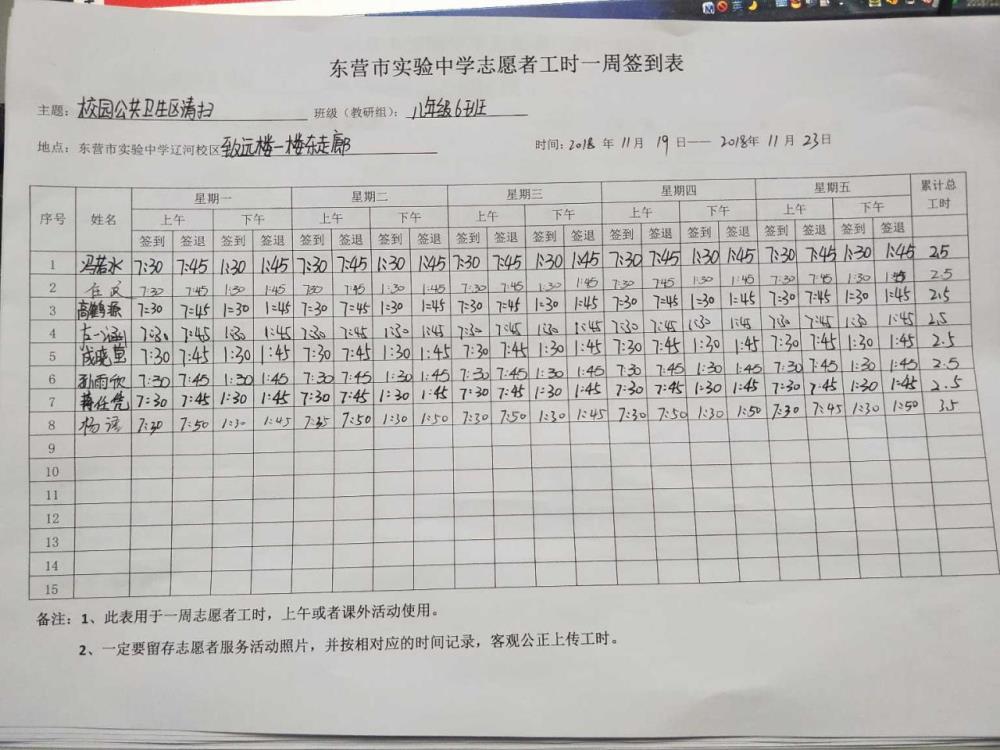 东营市实验中学志愿者工时一周签到表
主题：校园公共卫生区清扫 班级（教研组）：八年级6班
地点：东营市实验中学辽河校区致远楼一楼东走廊 时间：2018 年 11 月 19 日—— 2018年 11 月 23日
序号 姓名 星期一 星期二 星期三 星期四 星期五 累计总工时
上午 下午 上午 下午 上午 下午 上午 下午 上午 下午
签到 签退 签到 签退 签到 签退 签到 签退 签到 签退 签到 签退 签到 签退 签到 签退 签到 签退 签到 签退
1 冯若水 7:30 7:45 1:30 1:45 7:30 7:45 1:30 1:45 7:30 7:45 1:30 1:45 7:30 7:45 1:30 1:45 7:30 7:45 1:30 1:45 2.5
2 7:30 7:45 1:30 1:45 7:30 7:45 1:30 1:45 7:30 7:45 1:30 1:45 7:30 7:45 1:30 1:45 7:30 7:45 1:30 1:45 2.5
3 7:30 7:45 1:30 1:45 7:30 7:45 1:30 1:45 7:30 7:45 1:30 1:45 7:30 7:45 1:30 1:45 7:30 7:45 1:30 1:45 2.5
4 左一涵 7:30 7:45 1:30 1:45 7:30 7:45 1:30 1:45 7:30 7:45 1:30 1:45 7:30 7:45 1:30 1:45 7:30 7:45 1:30 1:45 2.5
5 7:30 7:45 1:30 1:45 7:30 7:45 1:30 1:45 7:30 7:45 1:30 1:45 7:30 7:45 1:30 1:45 7:30 7:45 1:30 1:45 2.5
6 孙雨欣 7:30 7:45 1:30 1:45 7:30 7:45 1:30 1:45 7:30 7:45 1:30 1:45 7:30 7:45 1:30 1:45 7:30 7:45 1:30 1:45 2.5
7 7:30 7:45 1:30 1:45 7:30 7:45 1:30 1:45 7:30 7:45 1:30 1:45 7:30 7:45 1:30 1:45 7:30 7:45 1:30 1:45 2.5
8 杨 7:30 7:50 1:30 1:45 7:35 7:50 1:30 1:50 7:30 7:50 1:30 1:45 7:30 7:50 1:30 1:50 7:30 7:45 1:30 1:50 3.5
9
10
11
12
13
14
15
备注：1、此表用于一周志愿者工时，上午或者课外活动使用。
2、一定要留存志愿者服务活动照片，并按相对应的时间记录，客观公正上传工时。